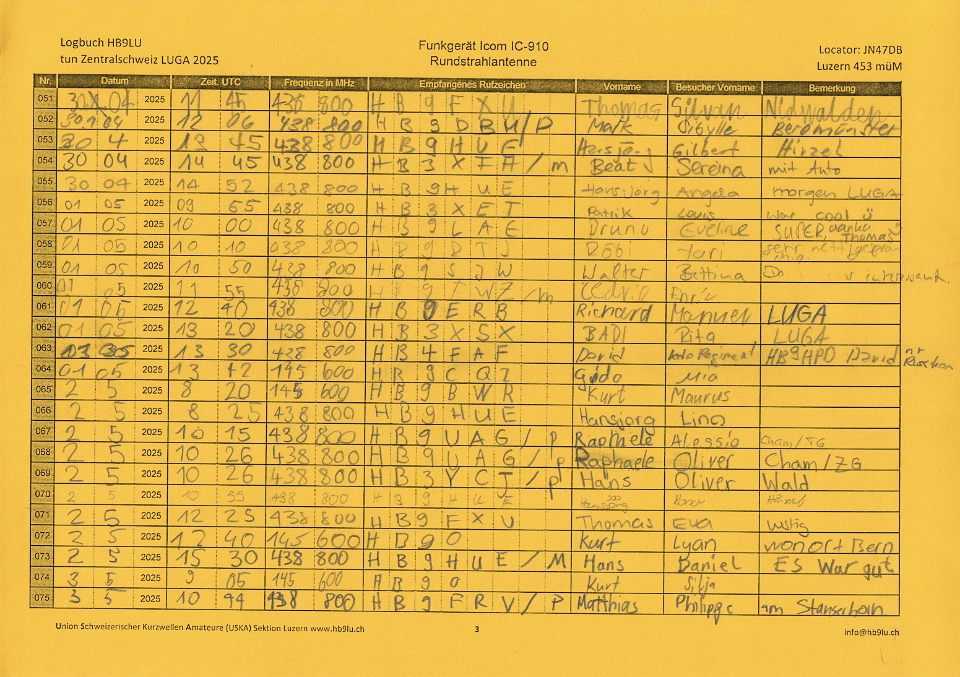 Logbuch HB9LU
tun Zentralschweiz LUGA 2025
Funkgerät Icom IC-910
Rundstrahlantenne
Locator: JN47DB
Luzern 453 müM
Nr. Datum Zeit UTC Frequenz in MHz Empfangenes Rufzeichen Vorname Besucher Vorname Bemerkung
051 30 04 2025 11 45 438 800 HB9FXU Thomas Silvan Nidwalden
052 30 04 2025 12 06 438 800 HB9DBU/P Mark Sibylle Beromünster
053 30 4 2025 13 45 438 800 HB9HUE Hansjörg Gilbert Hirzel
054 30 04 2025 14 45 438 800 HB3XFA/m Beat Sereina mit Auto
055 30 04 2025 14 52 438 800 HB9HUE Hans-jörg Angela morgen LUGA
056 01 05 2025 09 55 438 800 HB3XET Patrik Louis war cool
057 01 05 2025 10 00 438 800 HB9LAE Bruno Eveline SUPER danke Thomas
058 01 05 2025 10 10 438 800 HB9DTJ Jari sehr nett
059 01 05 2025 10 50 438 800 HB9SJW Walter Bettina
060 01 05 2025 11 55 438 800 HB9 /m Cedric
061 01 05 2025 12 40 438 800 HB9ERB Richard Manuel LUGA
062 01 05 2025 13 20 438 800 HB3XSX BADI Rita LUGA
063 01 05 2025 13 30 438 800 HB4FAF David HB9HPD David
064 01 05 2025 13 42 145 600 HB9CQZ Guido Mia
065 2 5 2025 8 20 145 600 HB9BWR Kurt Maurus
066 2 5 2025 8 25 438 800 HB9HUE Hansjörg Lino
067 2 5 2025 10 15 438 800 HB9UAG/P Raphaele Alessio Cham/ZG
068 2 5 2025 10 26 438 800 HB9UAG/p Raphaele Oliver Cham/ZG
069 2 5 2025 10 26 438 800 HB3YCJ/p Hans Oliver Wald
070 2 5 2025 10 55 438 800 HB9HUE Hansjörg Hirzel
071 2 5 2025 12 25 438 800 HB9FXU Thomas Eva lustig
072 2 5 2025 12 40 145 600 HB9O Kurt Lyan wonort Bern
073 2 5 2025 15 30 438 800 HB9HUE/M Hans Daniel ES War gut
074 3 5 2025 9 05 145 600 HB9O Kurt Silja
075 3 5 2025 10 44 438 800 HB9FRV/P Matthias Philippe am Stanserhorn
Union Schweizerischer Kurzwellen Amateure (USKA) Sektion Luzern www.hb9lu.ch
3
info@hb9lu.ch